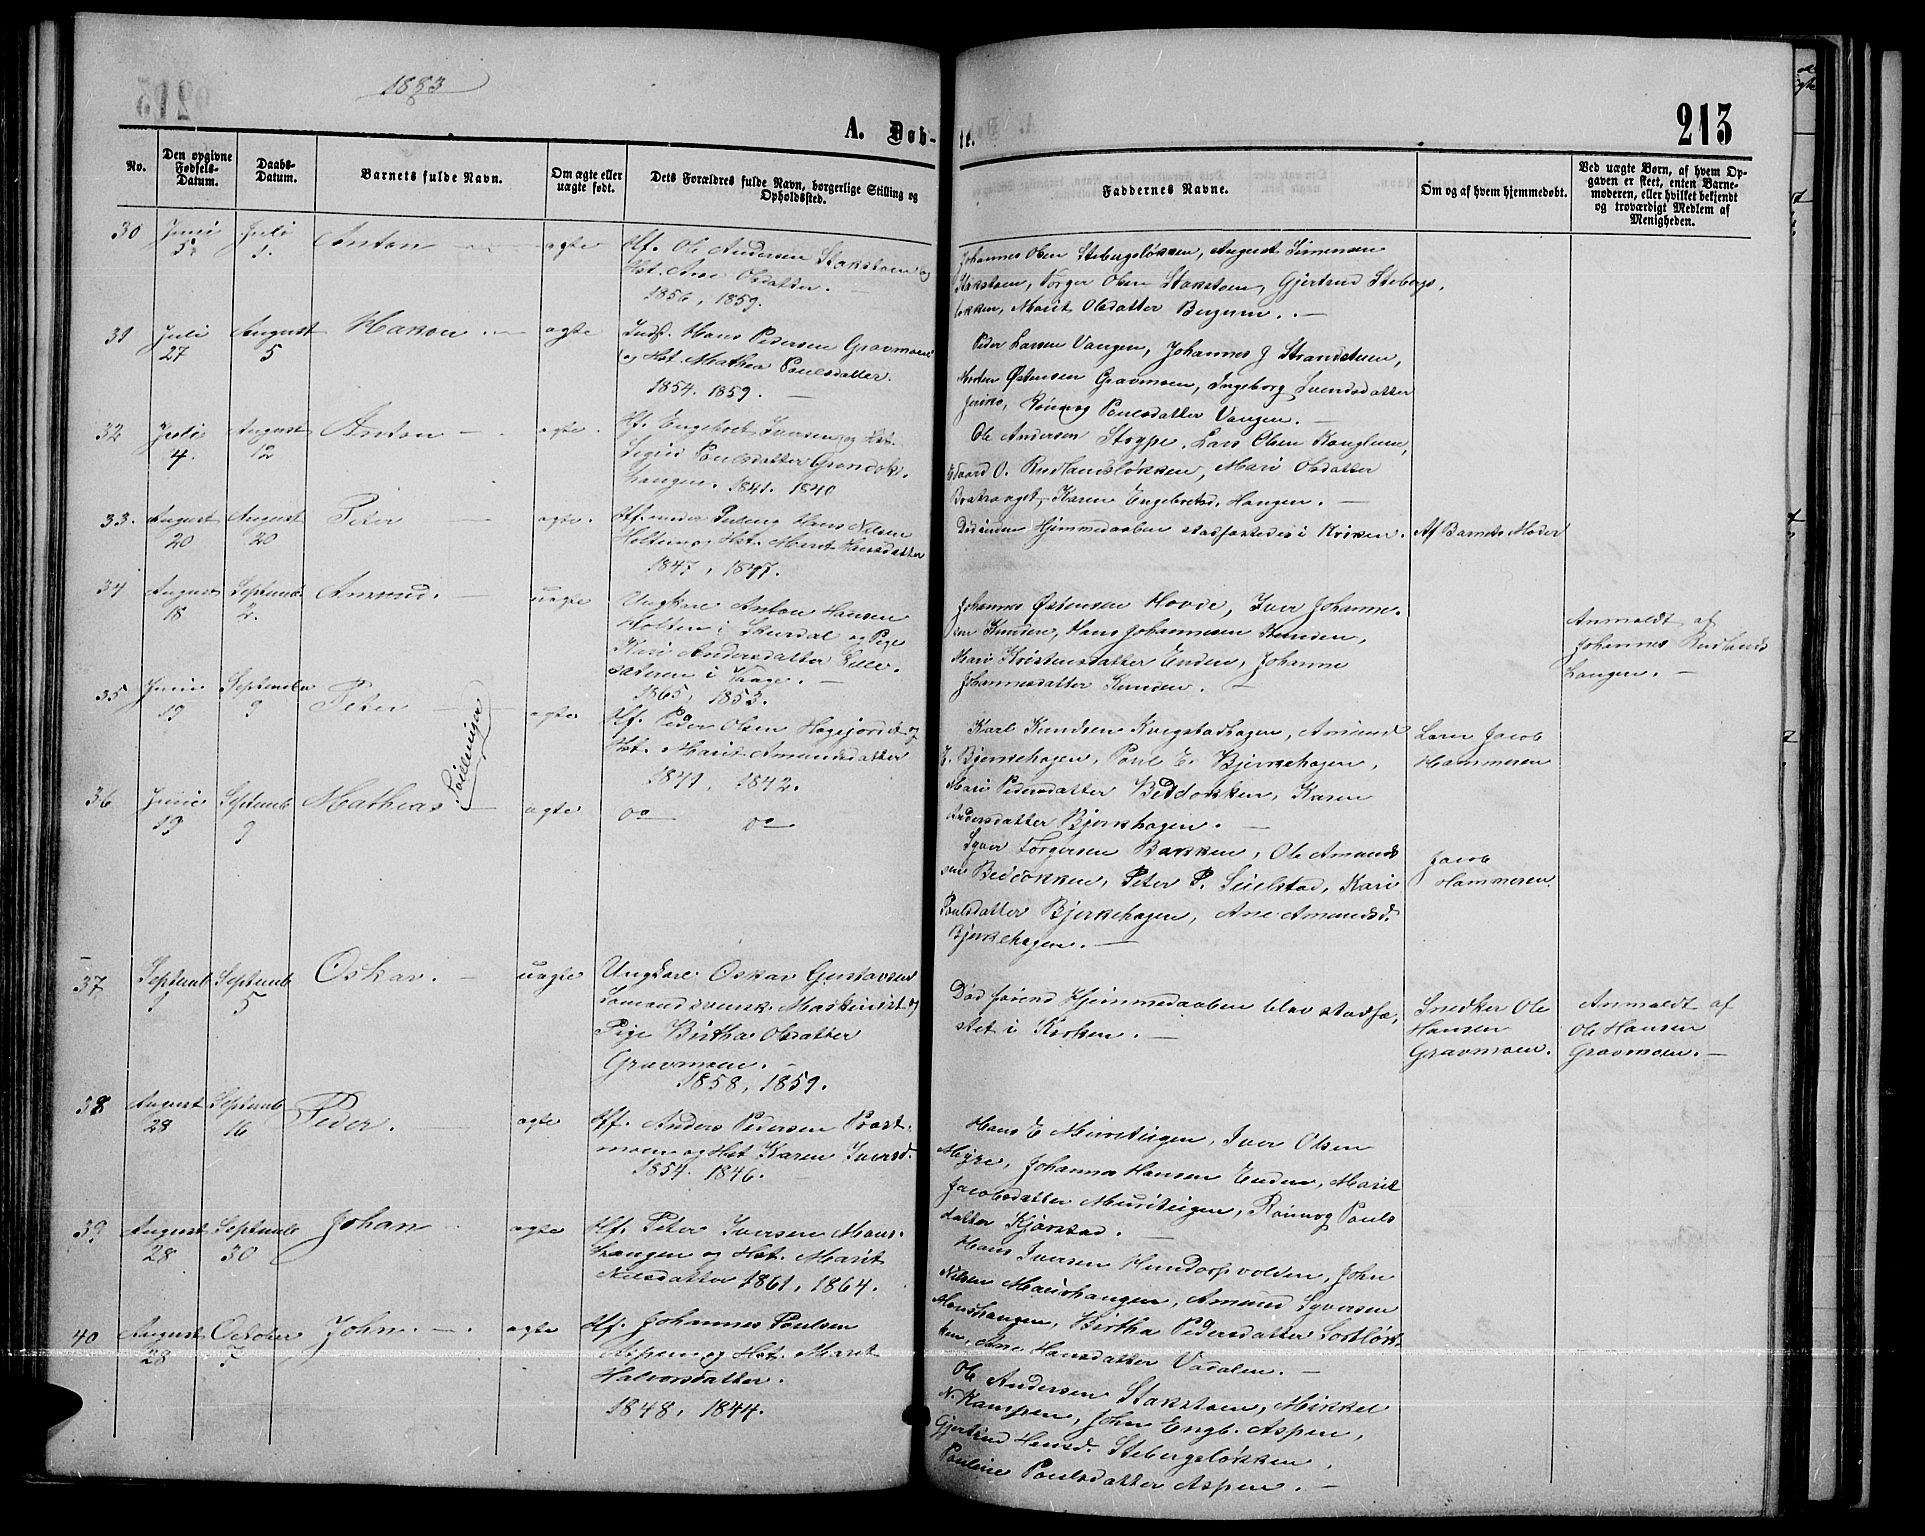 1883
213
A. Døb-
te.
No.
Den opgivne Fødsels-Datum.
Daabs-Datum.
Barnets fulde Navn.
Om ægte eller uægte født.
Dets Forældres fulde Navn, borgerlige Stilling og Opholdssted.
Faddernes Navne.
Om og af hvem hjemmedøbt.
Ved uægte Børn, af hvem Op-
gaven er skeet, enten Barne-
moderen, eller hvilket bekjendt
og troværdigt Medlem af
Menigheden.
30 Juni Juli Anton ægte Hf. Ole Andersen Stakstoen og
1.
Hst. Ane Olsdatter.
1856, 1859.
Johannes Olsen Stebergsløkken, August Simensen
Stakstoen, Torger Olsen Stakstoen, Gjertrud Stebergs-
løkken, Marit Olsdatter
31 Juli August Hakon ægte Inds. Hans Pedersen Gravmoen
27 5 og Hst. Mathea Poulsdatter.
1854. 1859.
Peder Larsen Vangen, Johannes J Strandstuen,
Morten Østensen Gravmoen, Ingeborg Svendsdatter
Rønnog Poulsdatter Vangen.
32 Juli August Anton ægte Hf. Engebret Iversen og Hst.
4. 12 Sigrid Poulsdatter
1841. 1840
Ole Andersen Stoype, Lars Olsen
O. Rudlandsløkken, Mari Olsdatter
Karen Engebretsd. Haugen.
33. August August Peter ægte. Hf. Hans Nilsen
20 20 Holten og Hst. Marit Hansdatter
1847, 1847.
Død inden Hjemmedaaben stadfæstedes i Kirken. Af Barnets Moder
34 August Septemb. Amund. uægte Ungkarl Anton Hansen
18 2. Holten i Skurdal og Pige
Kari Andersdatter Lille-
sæteren i Vaage.
1865, 1853.
Johannes Østensen Hovde, Iver Johanne-
sen Kunden, Hans Johannesen Kunden,
Mari Kristensdatter Enden, Johanne
Johannesdatter Kunden.
Anmeldt af
Johannes Rudlands
Langen.
35 Juni September Peter ægte Hf. Peder Olsen og
19 9 Hst. Marit Amundsdatter
1841, 1842.
Tvillinger
Karl Knudsen Kvigstadhagen, Amund
E. Bjerkehagen, Poul E. Bjerkehagen,
Mari Pedersdatter Beddokken, Karen
Andersdatter Bjerkehagen.
Lærer Jacob
Hammeren
36 Juni Septemb Mathias ægte do do
19 9
Syver Torgersen Bakken, Ole Amunds
sen Beddokken, Peter P. Seielstad, Kari
Poulsdatter Bjerkehagen, Ane Amundsd.
Bjerkehagen.
Jacob
Hammeren.
37 Septemb Septemb Oskar. uægte Ungkarl Oskar Gustavsen
1 5 svensk Maskinist og
Pige Birtha Olsdatter
Gravmoen.
1858, 1859.
Død førend Hjemmedaaben blev stadfæ-
stet i Kirken.
Snedker Ole
Hansen
Gravmoen.
Anmeldt af
Ole Hansen
Gravmoen.
38 August Septemb Peder. ægte Hf. Anders Pedersen Prest-
28 16 moen og Hst Karen Iversd.
1854. 1846.
Hans E Muristigen, Iver Olsen
Myre, Johannes Hansen Enden, Marit
Jacobsdatter Muristigen, Rønnog Pouls
datter Kjørstad.
39 August Septemb Johan ægte Hf. Peter Iversen Maus-
28 30 haugen og Hst. Marit
Nilsdatter 1861, 1864.
Hans Iversen Hundorpvolden, John
Nilsen Maushaugen, Amund Syversen
Maushaugen, Birtha Pedersdatter Sortløk-
ken, Ane Hansdatter Vadalen.
40 August October John. ægte Hf. Johannes Poulsen
28 7 Aspen og Hst. Marit
Halvorsdatter.
1848, 1844.
Ole Andersen Stakstoen, Mikkel
N. Kampen, John Engb. Aspen,
Gjertrud Hansd. Stebergsløkken,
Pauline Poulsdatter Aspen.